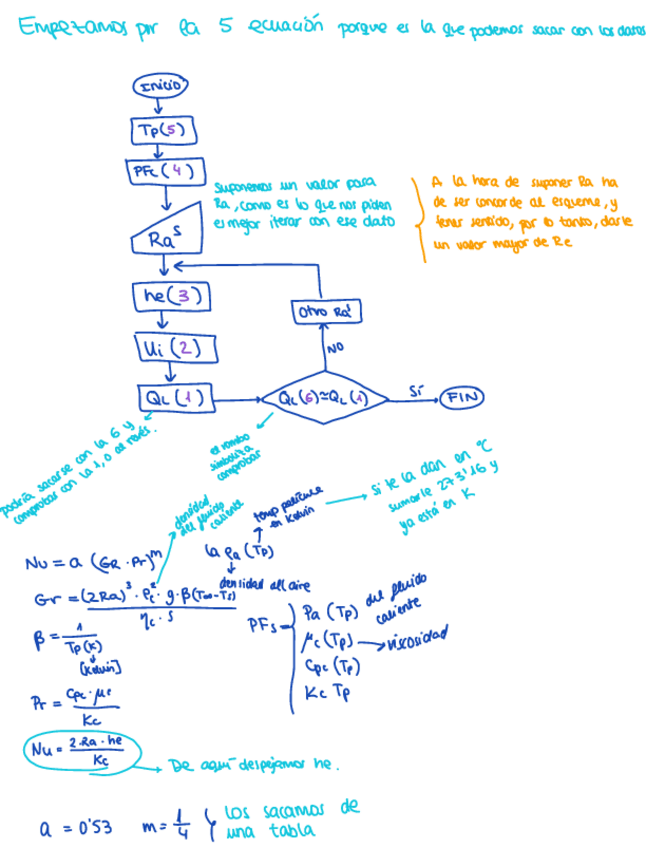 Empezamos por la 5 ecuación porque es la que podemos sacar con los datos
Inicio
Tp(5)
PFc(4)
Suponemos un valor para
Ra, como es lo que nos piden
es mejor iterar con ese dato
A la hora de suponer Ra ha
de ser concorde al esquema, y
tener sentido, por lo tanto, darle
un valor mayor de Re
Ra^s
he(3)
Otro Ra^s
Ui(2)
NO
QL(1)
QL(6)≃QL(1)
Sí
FIN
podría sacarse con la 6 y
comprobar con la 1, o al revés.
el rombo
simboliza
comprobar
densidad
del fluido
caliente
temp película
en Kelvin
si te la dan en °C
sumarle 273'16 y
ya está en K
Nu = a (Gr · Pr)^m
la ρa(Tp)
densidad del aire
Gr = (2Ra)^3 · ρc^2 · g · β(T∞-Ts)
PFs
ρa (Tp) del fluido
caliente
μc (Tp) → viscosidad
Cpc (Tp)
Kc Tp
β = 1 / Tp(K)
[Kelvin]
Pr = Cpc · μc / Kc
Nu = 2·Ra·he / Kc
De aquí despejamos he.
a = 0'53 m = 1/4 los sacamos de
una tabla